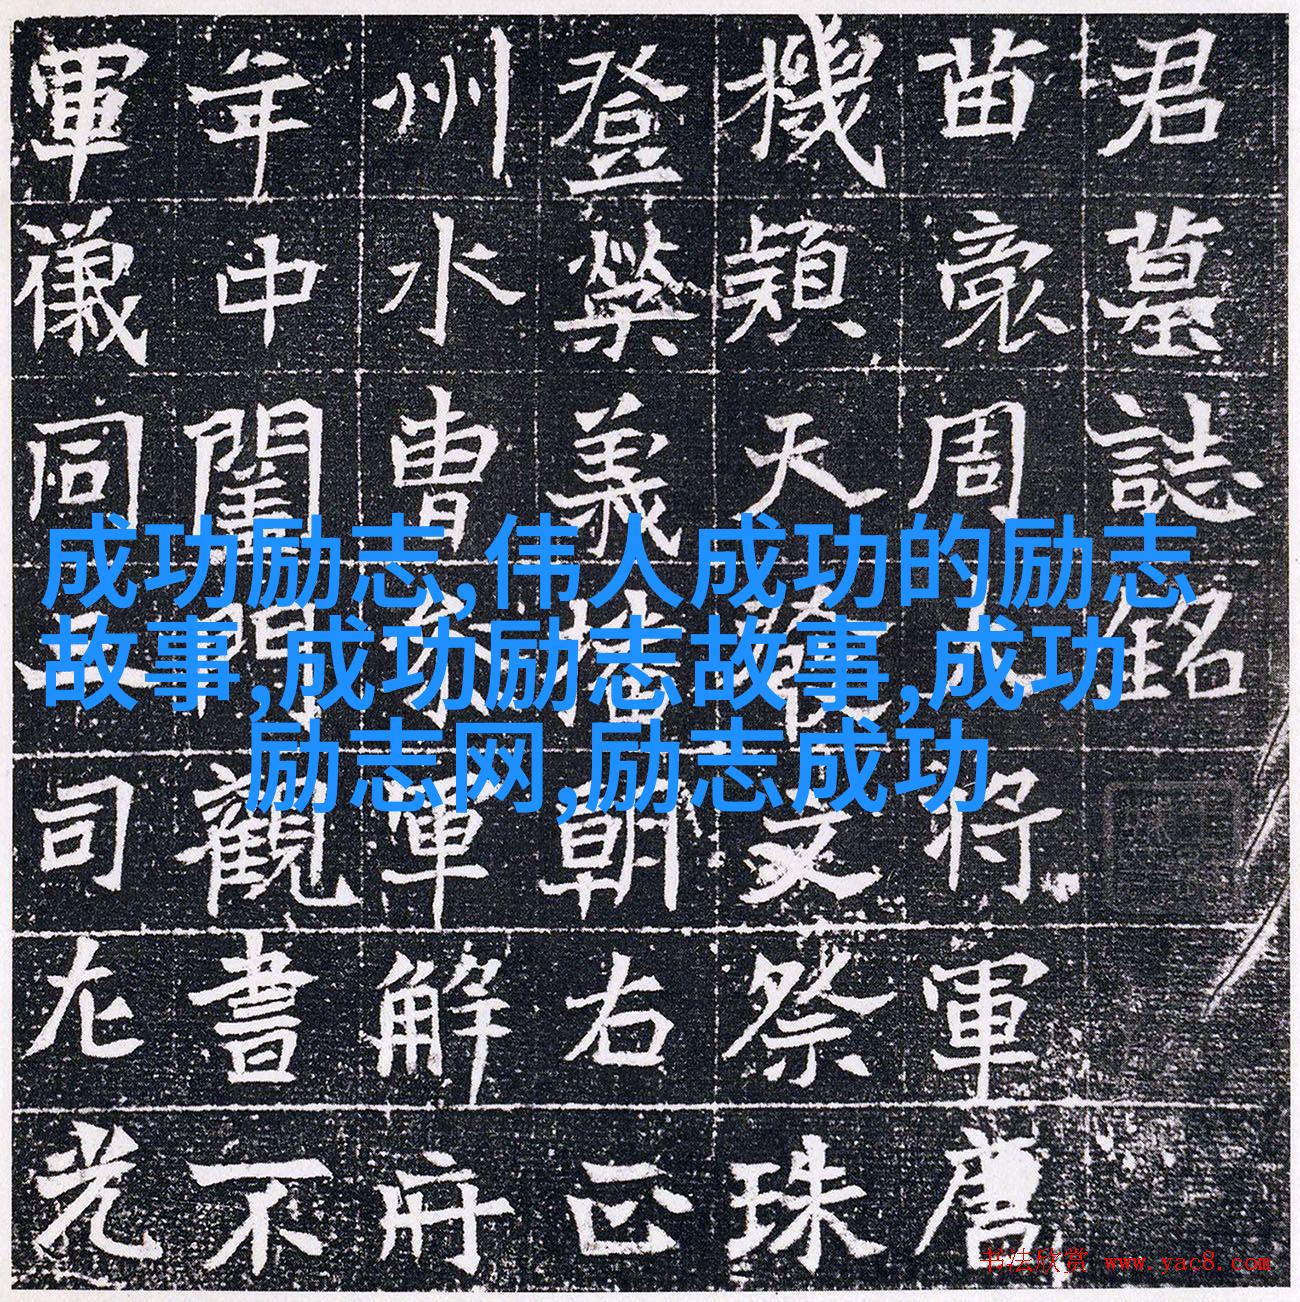 君墓誌銘
苗裔周将軍
機穎天文祭珠
登榮義朝右正
州水曹軍解府
年中閨門觀書不
軍儀同三司左光
成功励志,伟人成功的励志
故事,成功励志故事,成功
励志网,励志成功
书法欣赏 www.yac8.com